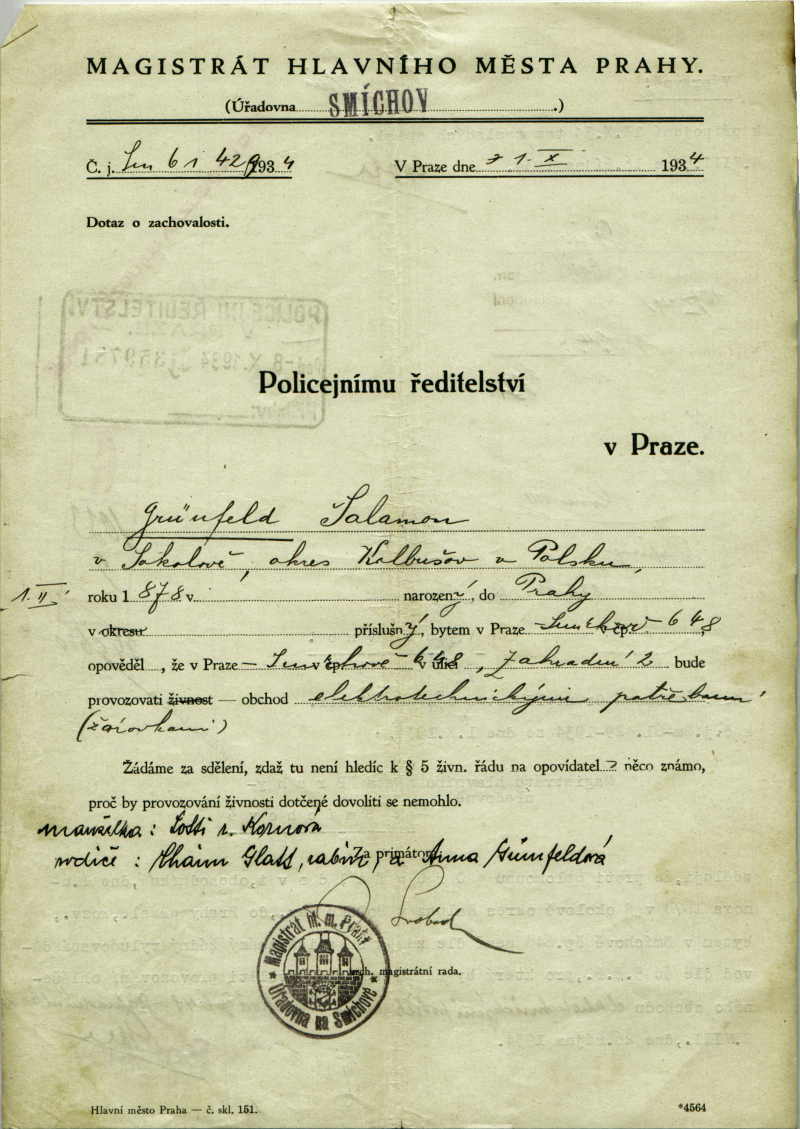 MAGISTRÁT HLAVNÍHO MĚSTA PRAHY.
(Úřadovna SMÍCHOV .)
Č. j. Sm 61 429 1934 V Praze dne 1. X. 1934
Dotaz o zachovalosti.
POLICEJNÍ ŘEDITELSTVÍ
Policejnímu ředitelství
v Praze.
Grünfeld Salamon
v Sokolově, okres Kolbušov v Polsku,
1. II. roku 1878 v narozený, do Prahy
v okresu příslušný, bytem v Praze – Smíchov čp. 648,
opověděl, že v Praze – Smíchově čp. 648 v ulici, Zahradní 2 bude
provozovati živnost — obchod elektrotechnickými potřebami
(žárovkami)
Žádáme za sdělení, zdaž tu není hledíc k § 5 živn. řádu na opovídatele něco známo,
proč by provozování živnosti dotčené dovoliti se nemohlo.
manželka: Lotti r. Kornová
rodiče: Chaim Glatt, rabín, a Anna Grünfeldová
Za primátora:
Svoboda
Magistrát hl. m. Prahy
Úřadovna na Smíchově
magistrátní rada.
Hlavní město Praha — č. skl. 151.
*4564